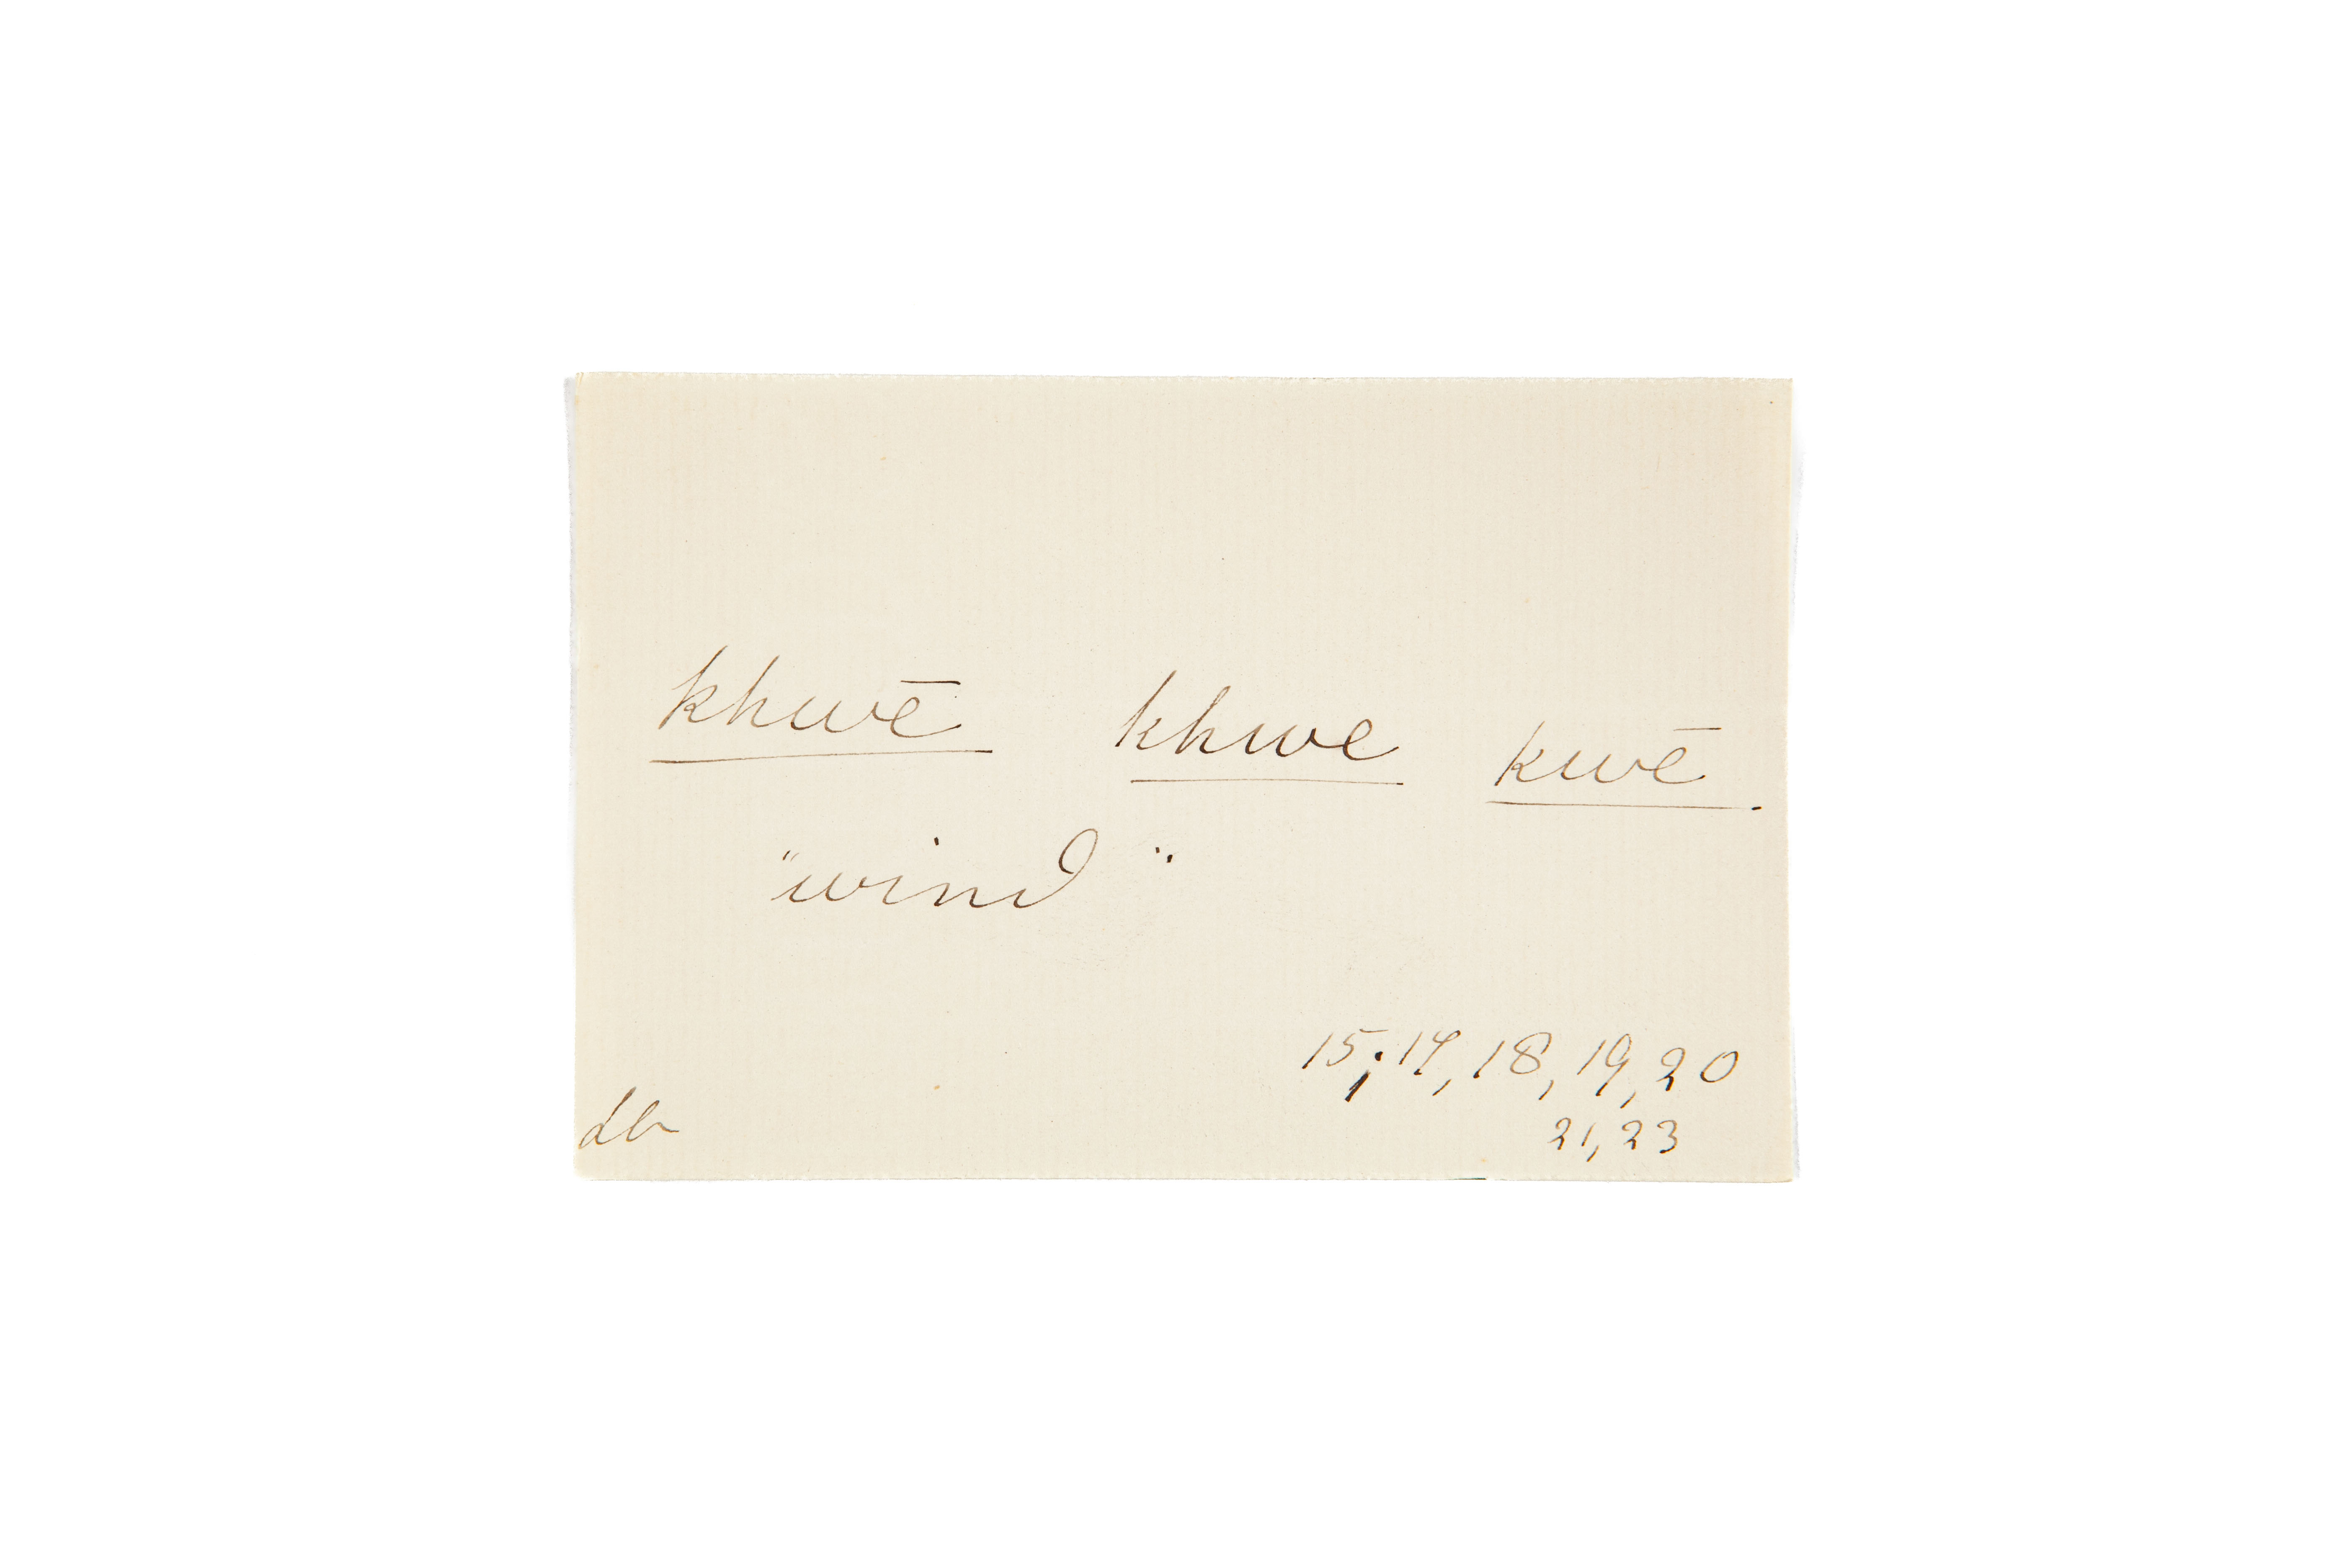 khwē khwe kwē.
"wind"
15, 17, 18, 19, 20
21, 23